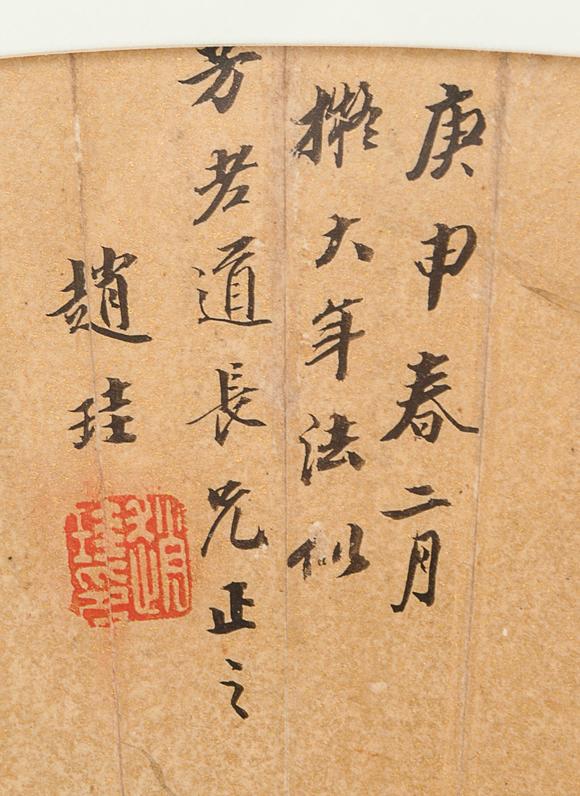 庚申春二月
擬大年法似
芳老道長兄正之
趙珪